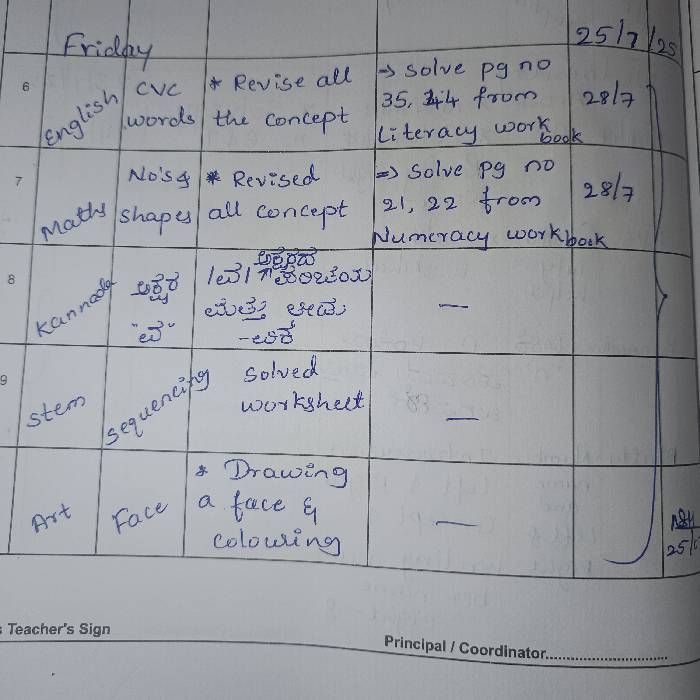 Friday
25/7/25
6
English
CVC
words
* Revise all
the concept
→ solve pg no
35, 44 from
Literacy work
book
28/7
7
Maths
No's &
shapes
* Revised
all concept
=> solve pg no
21, 22 from
Numeracy workbook
28/7
8
Kannada
ಅಕ್ಷರ
"ವ"
ಅಕ್ಷರದ
/ವ/ ಪರಿಚಯ
ಮತ್ತು
—
9
Stem
Sequencing
Solved
worksheet
—
Art
Face
* Drawing
a face &
colouring
—
25/
Teacher's Sign
Principal / Coordinator